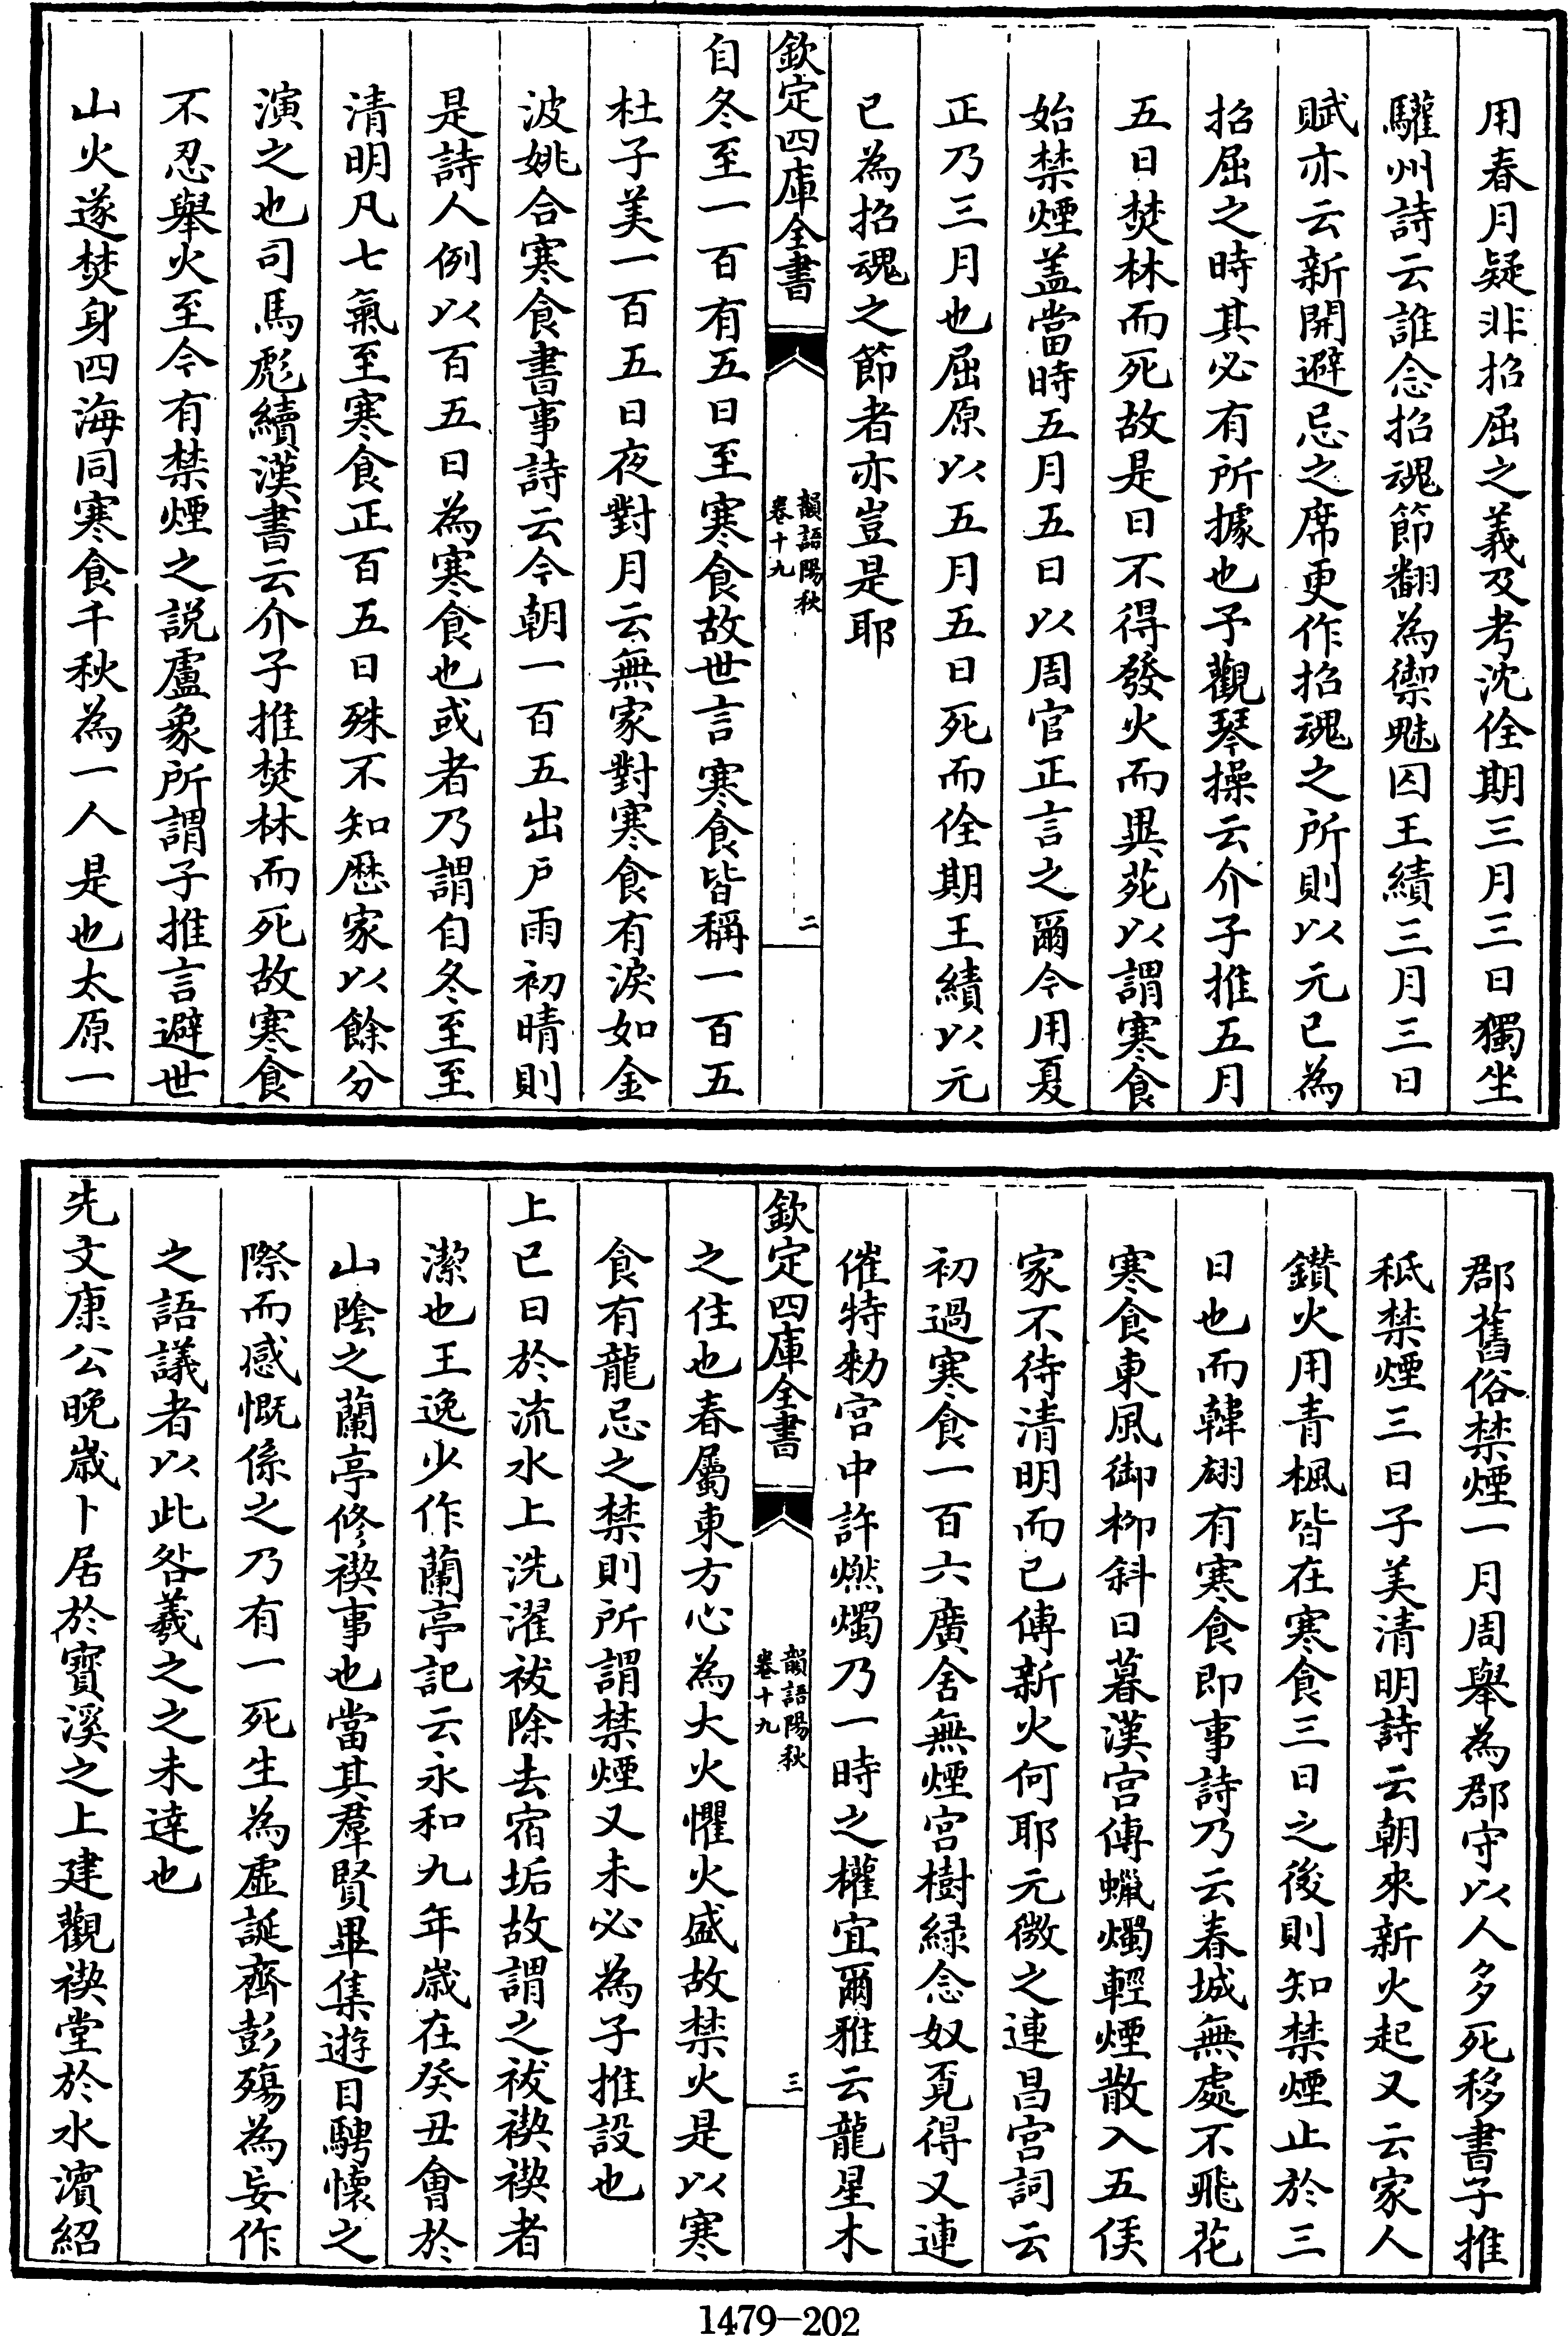 用春月疑非招屈之義及考沈佺期三月三日獨坐
驩州詩云誰念招魂節翻為禦魅囚王績三月三日
賦亦云新開避忌之席更作招魂之所則以元巳為
招屈之時其必有所據也予觀琴操云介子推五月
五日焚林而死故是日不得發火而異苑以謂寒食
始禁煙盖當時五月五日以周官正言之爾今用夏
正乃三月也屈原以五月五日死而佺期王績以元
巳為招魂之節者亦豈是耶
欽定四庫全書
韻語陽秋
卷十九
二
自冬至一百有五日至寒食故世言寒食皆稱一百五
杜子美一百五日夜對月云無家對寒食有淚如金
波姚合寒食書事詩云今朝一百五出戶雨初晴則
是詩人例以百五日為寒食也或者乃謂自冬至至
清明凡七氣至寒食正百五日殊不知厯家以餘分
演之也司馬彪續漢書云介子推焚林而死故寒食
不忍舉火至今有禁煙之説盧象所謂子推言避世
山火遂焚身四海同寒食千秋為一人是也太原一
郡舊俗禁煙一月周舉為郡守以人多死移書子推
秖禁煙三日子美清明詩云朝來新火起又云家人
鑚火用青楓皆在寒食三日之後則知禁煙止於三
日也而韓翃有寒食即事詩乃云春城無處不飛花
寒食東風御柳斜日暮漢宫傳蠟燭輕煙散入五侯
家不待清明而已傳新火何耶元微之連昌宫詞云
初過寒食一百六店舍無煙宫樹緑念奴覓得又連
催特勑宫中許燃燭乃一時之權宜爾雅云龍星木
欽定四庫全書
韻語陽秋
卷十九
三
之位也春屬東方心為大火懼火盛故禁火是以寒
食有龍忌之禁則所謂禁煙又未必為子推設也
上巳日於流水上洗濯祓除去宿垢故謂之祓禊禊者
潔也王逸少作蘭亭記云永和九年嵗在癸丑會於
山陰之蘭亭修禊事也當其羣賢畢集遊目騁懷之
際而感慨係之乃有一死生為虛誕齊彭殤為妄作
之語議者以此咎羲之之未達也
先文康公晩嵗卜居於寳溪之上建觀禊堂於水濱紹
1479-202